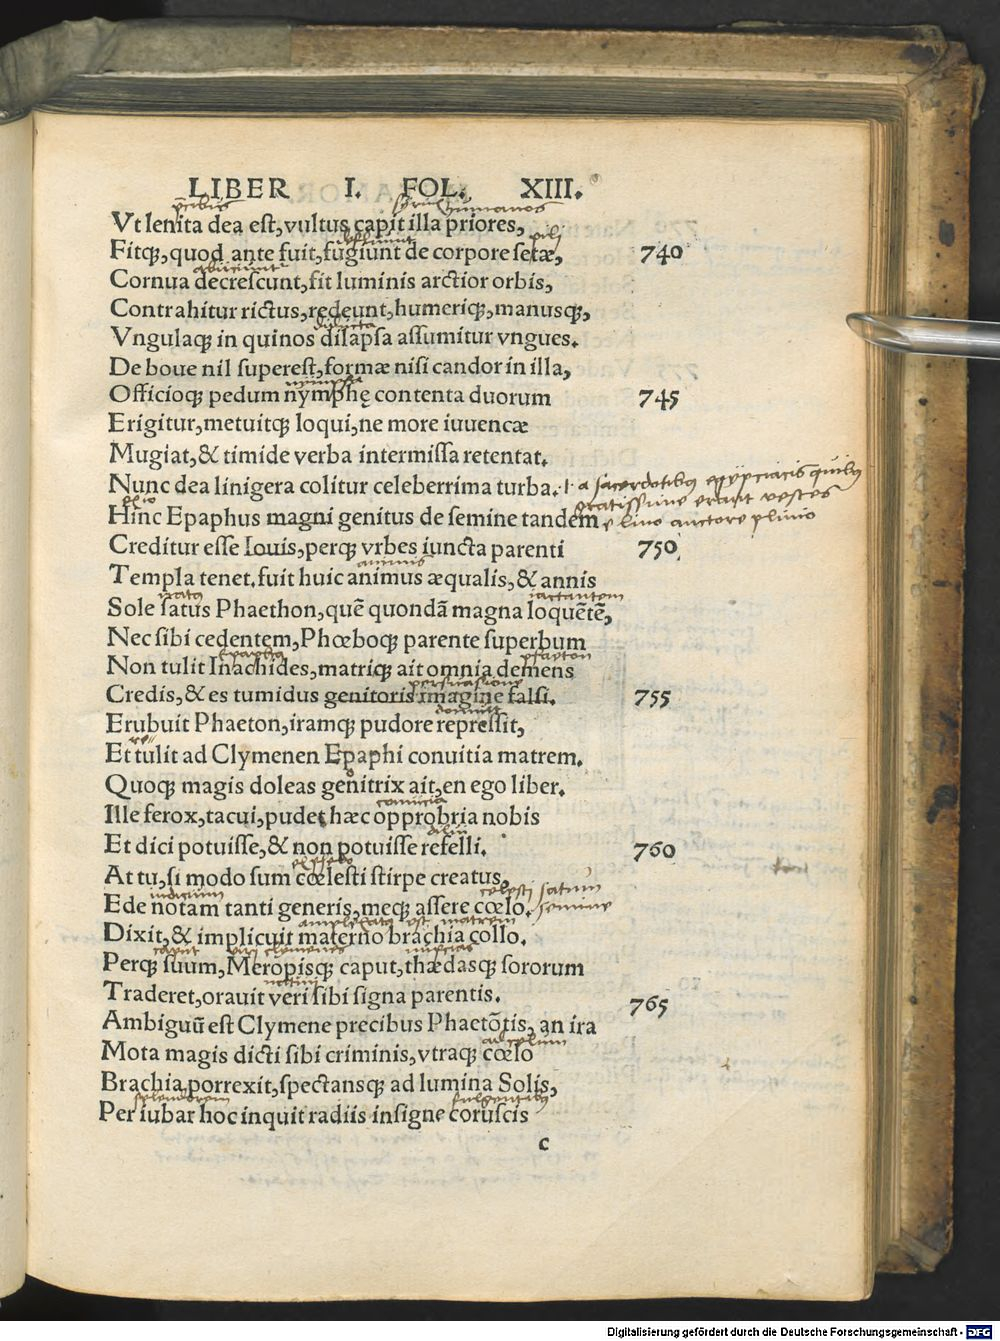 LIBER I. FOL. XIII.
p̄cibus scrutū humanos
Vt lenita dea est, vultus capit illa priores,
pili
Fitq;, quod ante fuit, fugiunt de corpore setæ, 740
Cornua decrescunt, fit luminis arctior orbis,
Contrahitur rictus, redeunt, humeriq;, manusq;,
diuisa
Vngulaq; in quinos dilapsa assumitur vngues.
De boue nil superest, formæ nisi candor in illa,
nymphæ
Officioq; pedum nymphę contenta duorum 745
Erigitur, metuitq; loqui, ne more iuuencæ
Mugiat, & timide verba intermissa retentat.
Nunc dea linigera colitur celeberrima turba. .i. a sacerdotibus egypciacis quibus
gratissime erant vestes
Hinc Epaphus magni genitus de semine tandem e lino auctore plinio
Creditur esse Iouis, perq; vrbes iuncta parenti 750
animis
Templa tenet. fuit huic animus æqualis, & annis
nata iactantem
Sole satus Phaethon, quē quondā magna loquētē,
Nec sibi cedentem, Phœboq; parente superbum
epaphus phaeton
Non tulit Inachides, matriq; ait omnia demens
persuasione
Credis, & es tumidus genitoris imagine falsi. 755
domuit
Erubuit Phaeton, iramq; pudore repressit,
re
Et tulit ad Clymenen Epaphi conuitia matrem.
Quoq; magis doleas genitrix ait, en ego liber.
conuicia
Ille ferox, tacui, pudet hæc opprobria nobis
Et dici potuisse, & non potuisse refelli. 760
At tu, si modo sum cœlesti stirpe creatus,
indicium celesti satum
Ede notam tanti generis, meq; assere cœlo. semine
amplexata est matrem
Dixit, & implicuit materno brachia collo.
viri clymenes
Perq; suum, Meropisq; caput, thædasq; sororum
Traderet, orauit veri sibi signa parentis.
765
Ambiguū est Clymene precibus Phaetōtis, an ira
ad celum
Mota magis dicti sibi criminis, vtraq; cœlo
Brachia porrexit, spectansq; ad lumina Solis,
splendorem fulgentibus
Per iubar hoc inquit radiis insigne coruscis
c
Digitalisierung gefördert durch die Deutsche Forschungsgemeinschaft - DFG